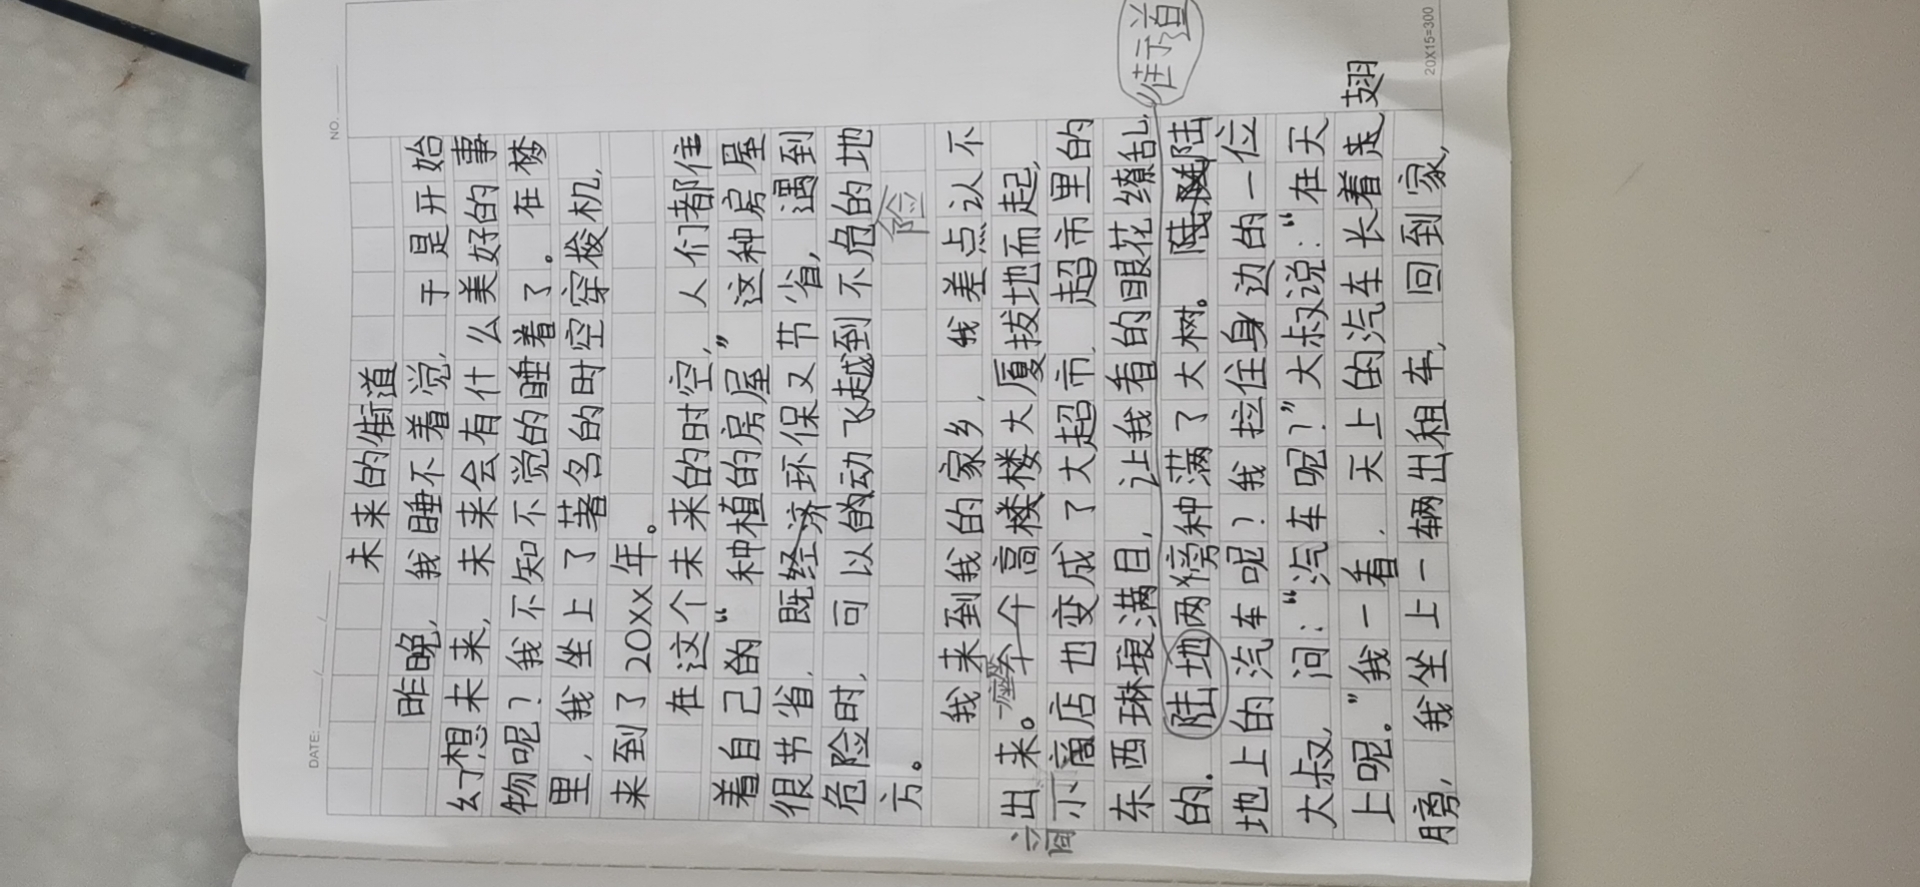 NO.
DATE:
未来的街道
昨晚，我睡不着觉，于是开始
幻想未来，未来会有什么美好的事
物呢？我不知不觉的睡着了。在梦
里，我坐上了著名的时空穿梭机，
来到了20XX年。
在这个未来的时空，人们都住
着自己的“种植的房屋”这种房屋
很节省，既经济环保又节省，遇到
危险时，可以自动飞越到不危的地
险
方。
我来到我的家乡，我差点认不
出来。一座座高楼大厦拔地而起，
小商店也变成了大超市，超市里的
东西琳琅满目，让我看的眼花缭乱
街道
的。陆地两旁种满了大树。陆
地上的汽车呢？我拉住身边的一位
大叔，问：“汽车呢？”大叔说：“在天
上呢。”我一看，天上的汽车长着翅
膀，我坐上一辆出租车，回到家，
20X15=300